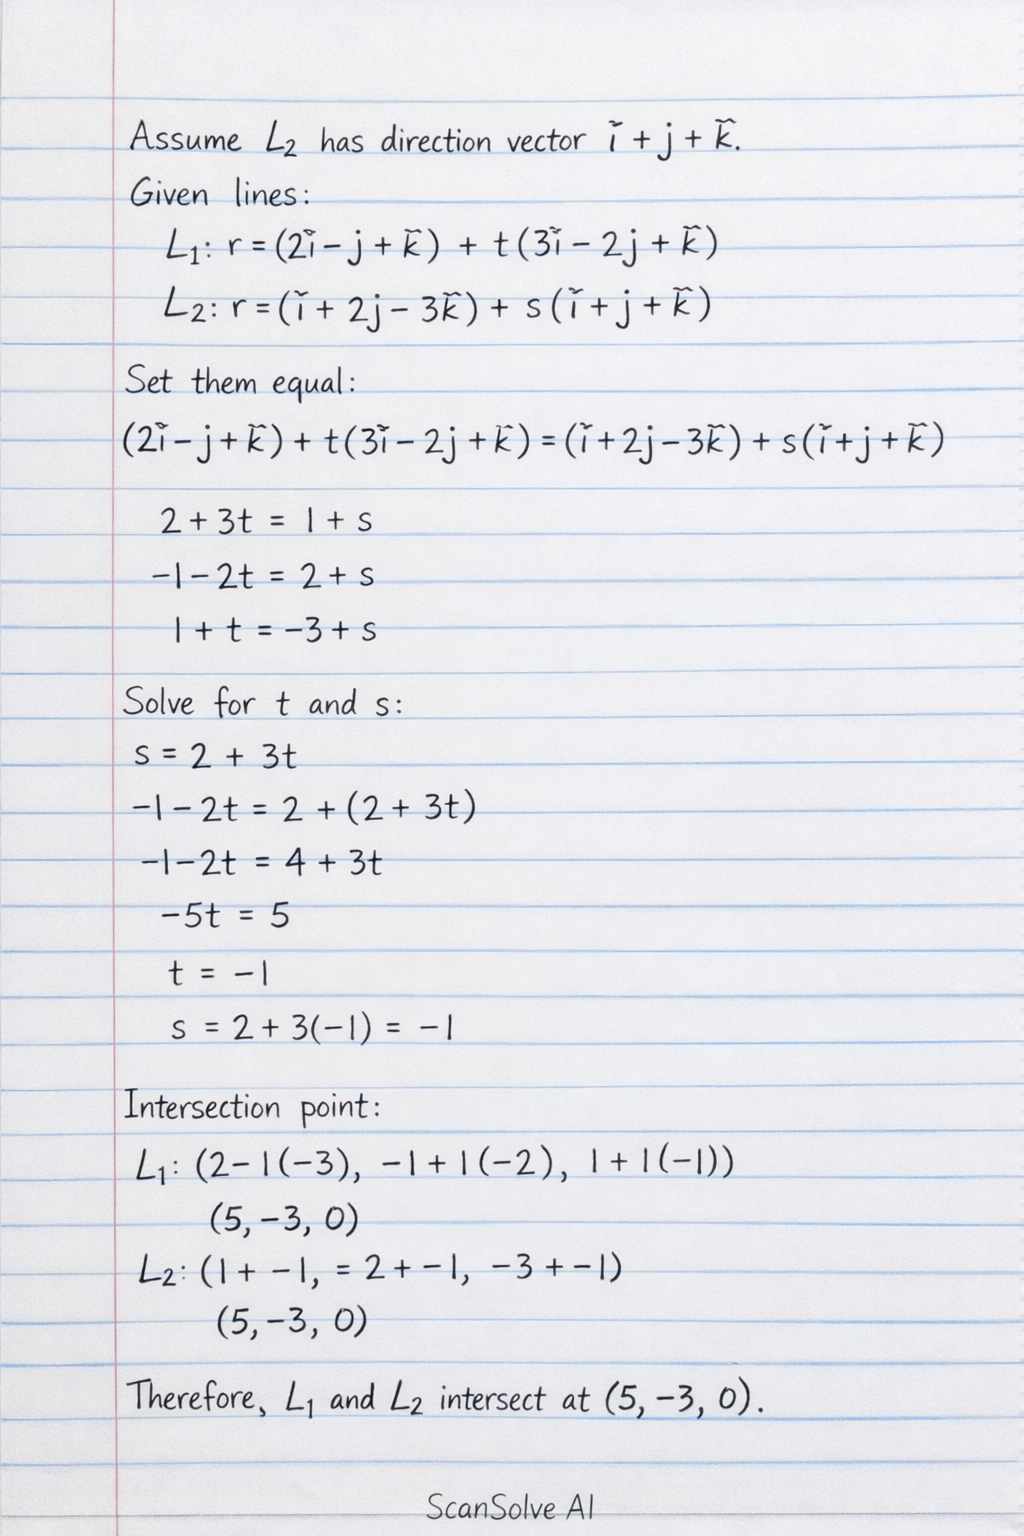 Assume L₂ has direction vector ĭ + j + k̃.
Given lines:
L₁: r = (2ĭ − j + k̃) + t(3ĭ − 2j + k̃)
L₂: r = (ĭ + 2j − 3k̃) + s(ĭ + j + k̃)
Set them equal:
(2ĭ − j + k̃) + t(3ĭ − 2j + k̃) = (ĭ + 2j − 3k̃) + s(ĭ + j + k̃)
2 + 3t = 1 + s
−1 − 2t = 2 + s
1 + t = −3 + s
Solve for t and s:
s = 2 + 3t
−1 − 2t = 2 + (2 + 3t)
−1 − 2t = 4 + 3t
−5t = 5
t = −1
s = 2 + 3(−1) = −1
Intersection point:
L₁: (2 − 1(−3), −1 + 1(−2), 1 + 1(−1))
(5, −3, 0)
L₂: (1 + −1, = 2 + −1, −3 + −1)
(5, −3, 0)
Therefore, L₁ and L₂ intersect at (5, −3, 0).
ScanSolve AI